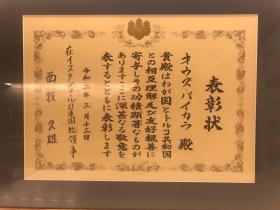 表彰状
オウズ・バイカラ 殿
貴殿はわが国とトルコ共和国
との相互理解及び友好親善に
寄与しその功績顕著なものが
ありますここに深甚なる敬意を
表するとともに表彰します
令和二年三月十三日
在イスタンブール日本国総領事
西牧久雄